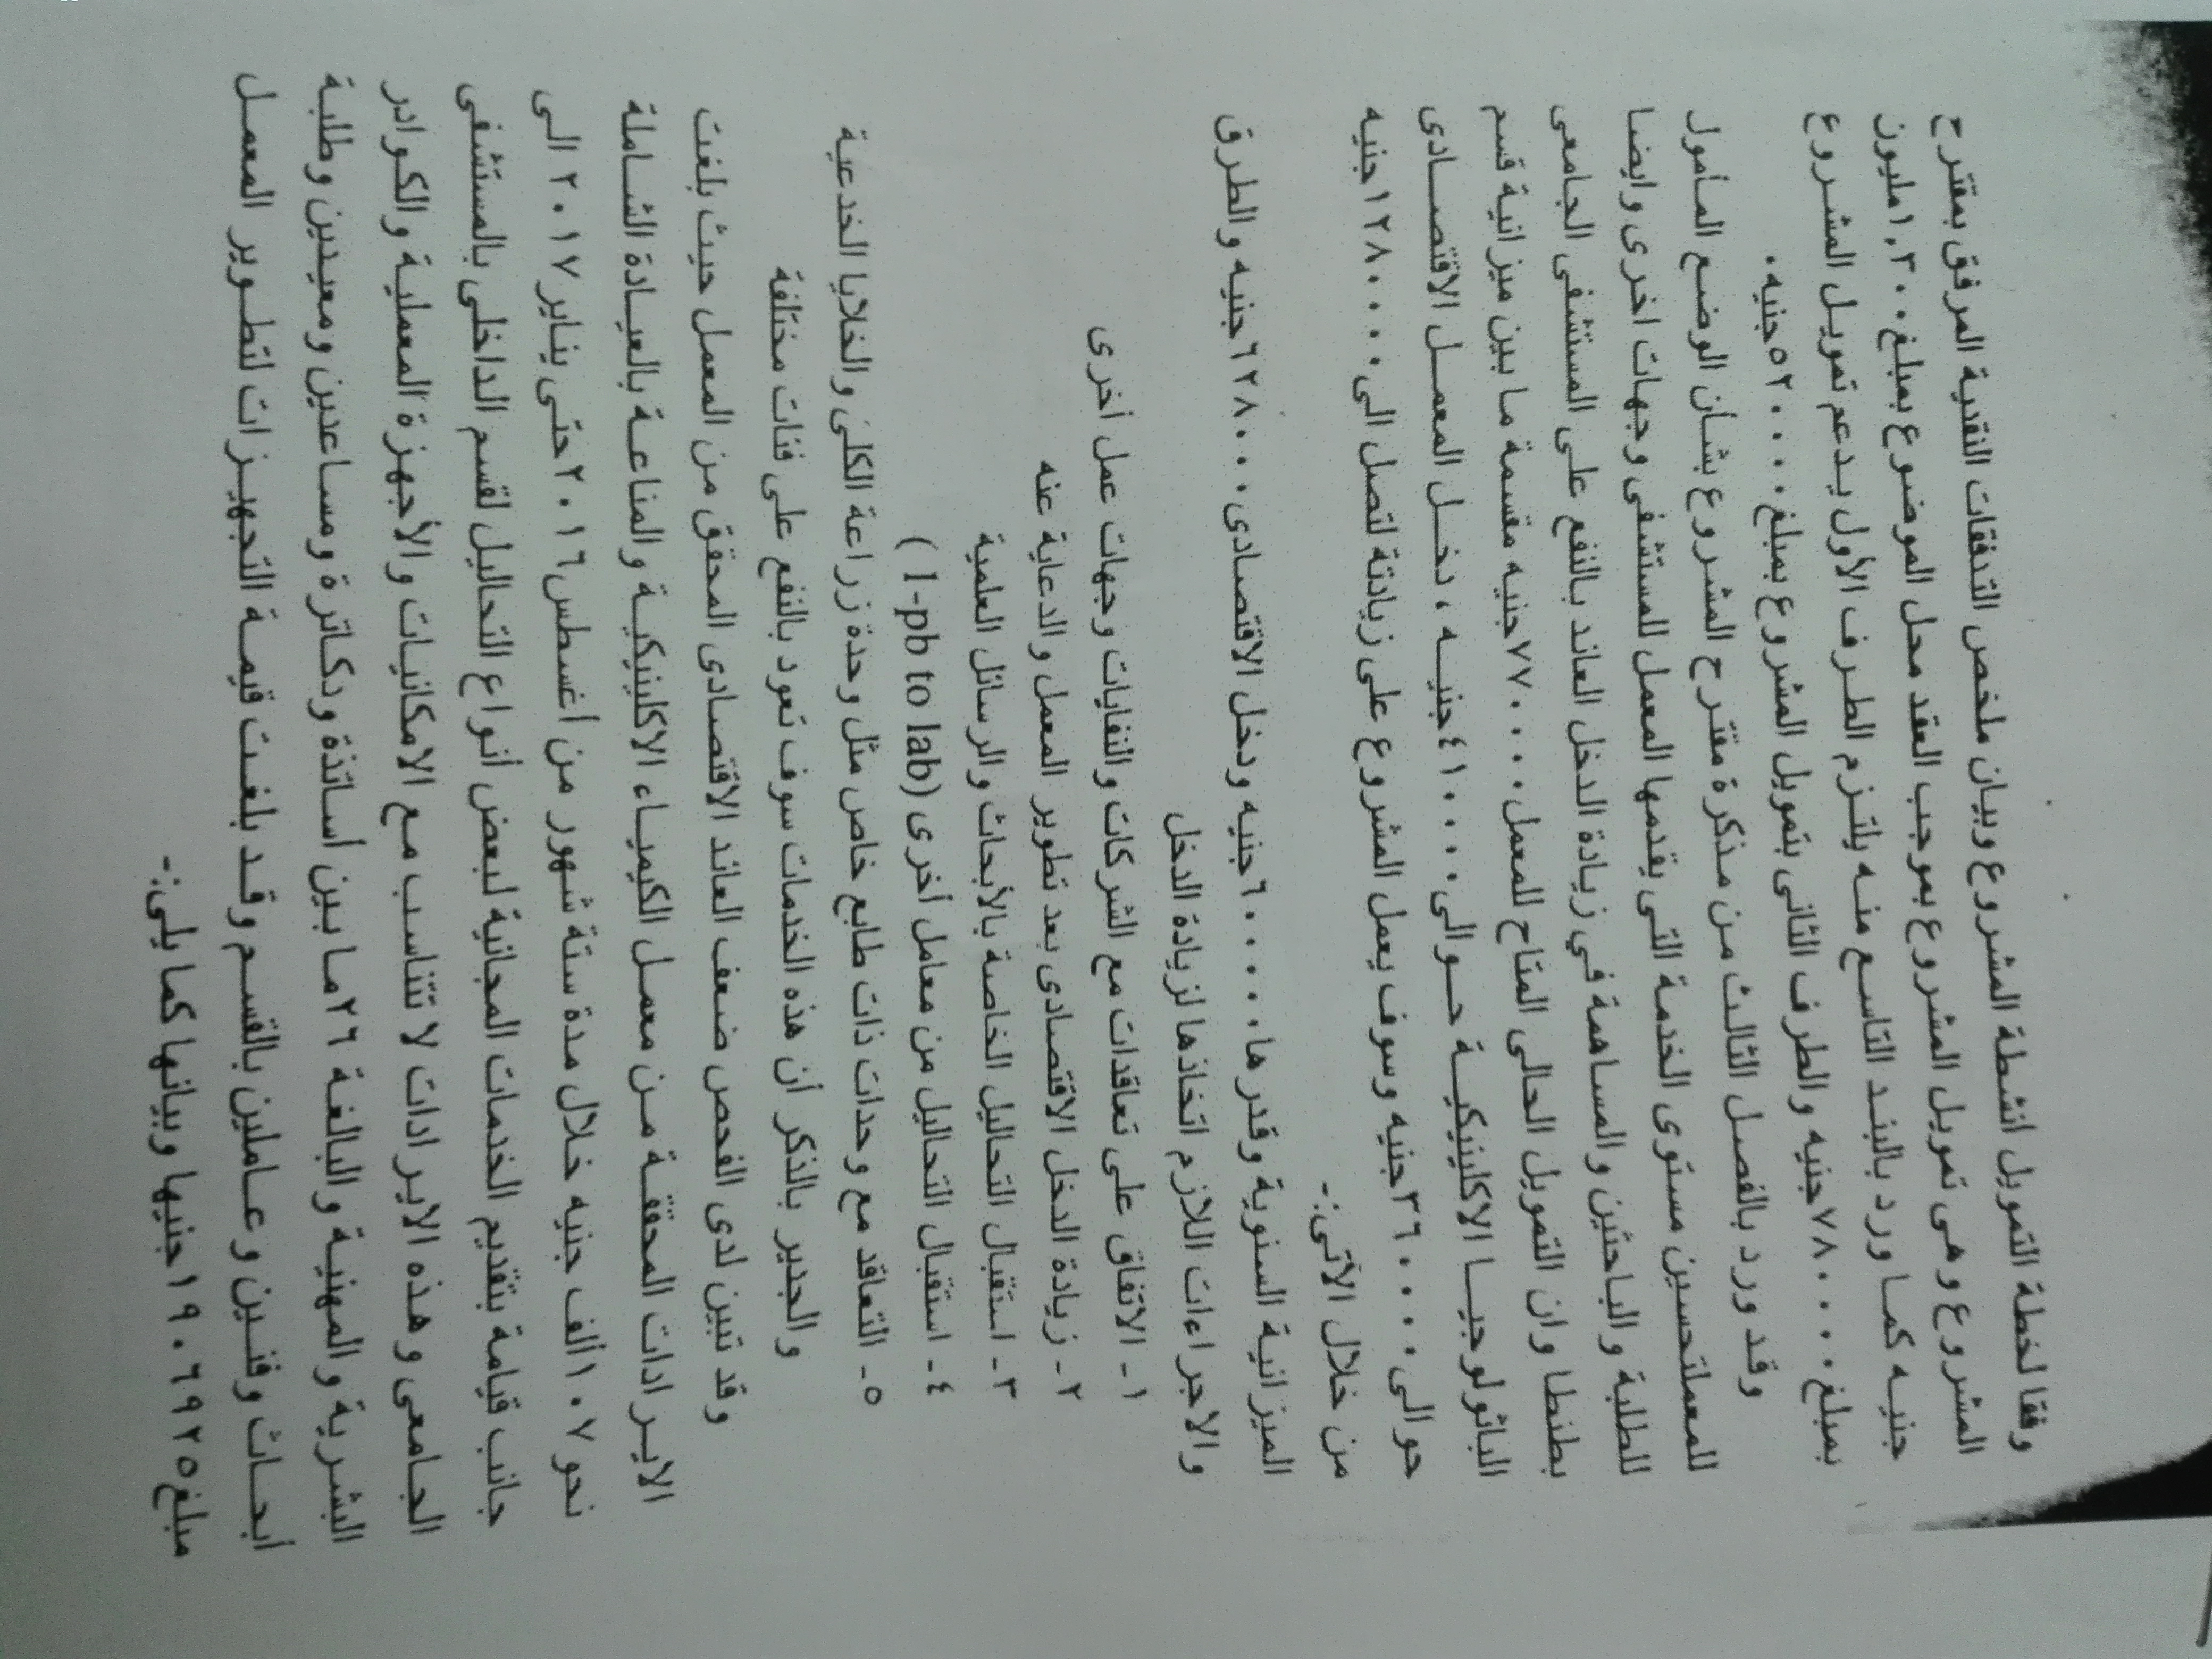 وفقا لخطة التمويل انشطة المشروع وبيان ملخص التدفقات النقدية المرفق بمقترح
المشروع وهى تمويل المشروع بموجب العقد محل الموضوع بمبلغ ١,٣٠٠مليون
جنيه كما ورد بالبند التاسع منه يلتزم الطرف الأول بدعم تمويل المشروع
بمبلغ ٧٨٠٠٠٠جنيه والطرف الثانى بتمويل المشروع بمبلغ ٥٢٠٠٠٠جنيه.
وقد ورد بالفصل الثالث من مذكرة مقترح المشروع بشأن الوضع المأمول
للمعملتحسين مستوى الخدمة التى يقدمها المعمل للمستشفى وجهات اخرى وايضا
للطلبة والباحثين والمساهمة في زيادة الدخل العائد بالنفع على المستشفى الجامعى
بطنطا وان التمويل الحالى المتاح للمعمل ٧٧٠٠٠جنيه مقسمة ما بين ميزانية قسم
الباثولوجيا الاكلينيكية حوالى ٤١٠٠٠جنيه ، دخل المعمل الاقتصادى
حوالى ٣٦٠٠٠جنيه وسوف يعمل المشروع على زيادتة لتصل الى ١٢٨٠٠٠جنيه
من خلال الآتى:-
الميزانية السنوية وقدرها ٦٠٠٠٠جنيه ودخل الاقتصادى ٦٢٨٠٠٠جنيه والطرق
والاجراءات اللازم اتخاذها لزيادة الدخل
١- الاتفاق على تعاقدات مع الشركات والنفايات وجهات عمل أخرى
٢- زيادة الدخل الاقتصادى بعد تطوير المعمل والدعاية عنه
٣- استقبال التحاليل الخاصة بالأبحاث والرسائل العلمية
٤- استقبال التحاليل من معامل أخرى (1-pb to lab )
٥- التعاقد مع وحدات ذات طابع خاص مثل وحدة زراعة الكلى والخلايا الخدعية
والجدير بالذكر أن هذه الخدمات سوف تعود بالنفع على فئات مختلفة
وقد تبين لدى الفحص ضعف العائد الاقتصادى المحقق من المعمل حيث بلغت
الايرادات المحققة من معمل الكيمياء الاكلينيكية والمناعة بالعيادة الشاملة
نحو ١٠٧ألف جنيه خلال مدة ستة شهور من أغسطس٢٠١٦حتى يناير٢٠١٧ الى
جانب قيامة بتقديم الخدمات المجانية لبعض أنواع التحاليل لقسم الداخلى بالمستشفى
الجامعى وهذه الايرادات لا تتناسب مع الامكانيات والأجهزة المعملية والكوادر
البشرية والمهنية والبالغة ٢٦ما بين أساتذة ودكاترة ومساعدين ومعيدين وطلبة
أبحاث وفنين وعاملين بالقسم وقد بلغت قيمة التجهيزات لتطوير المعمل
مبلغ١٩٠٦٩٢٥جنيها وبيانها كما يلى:-